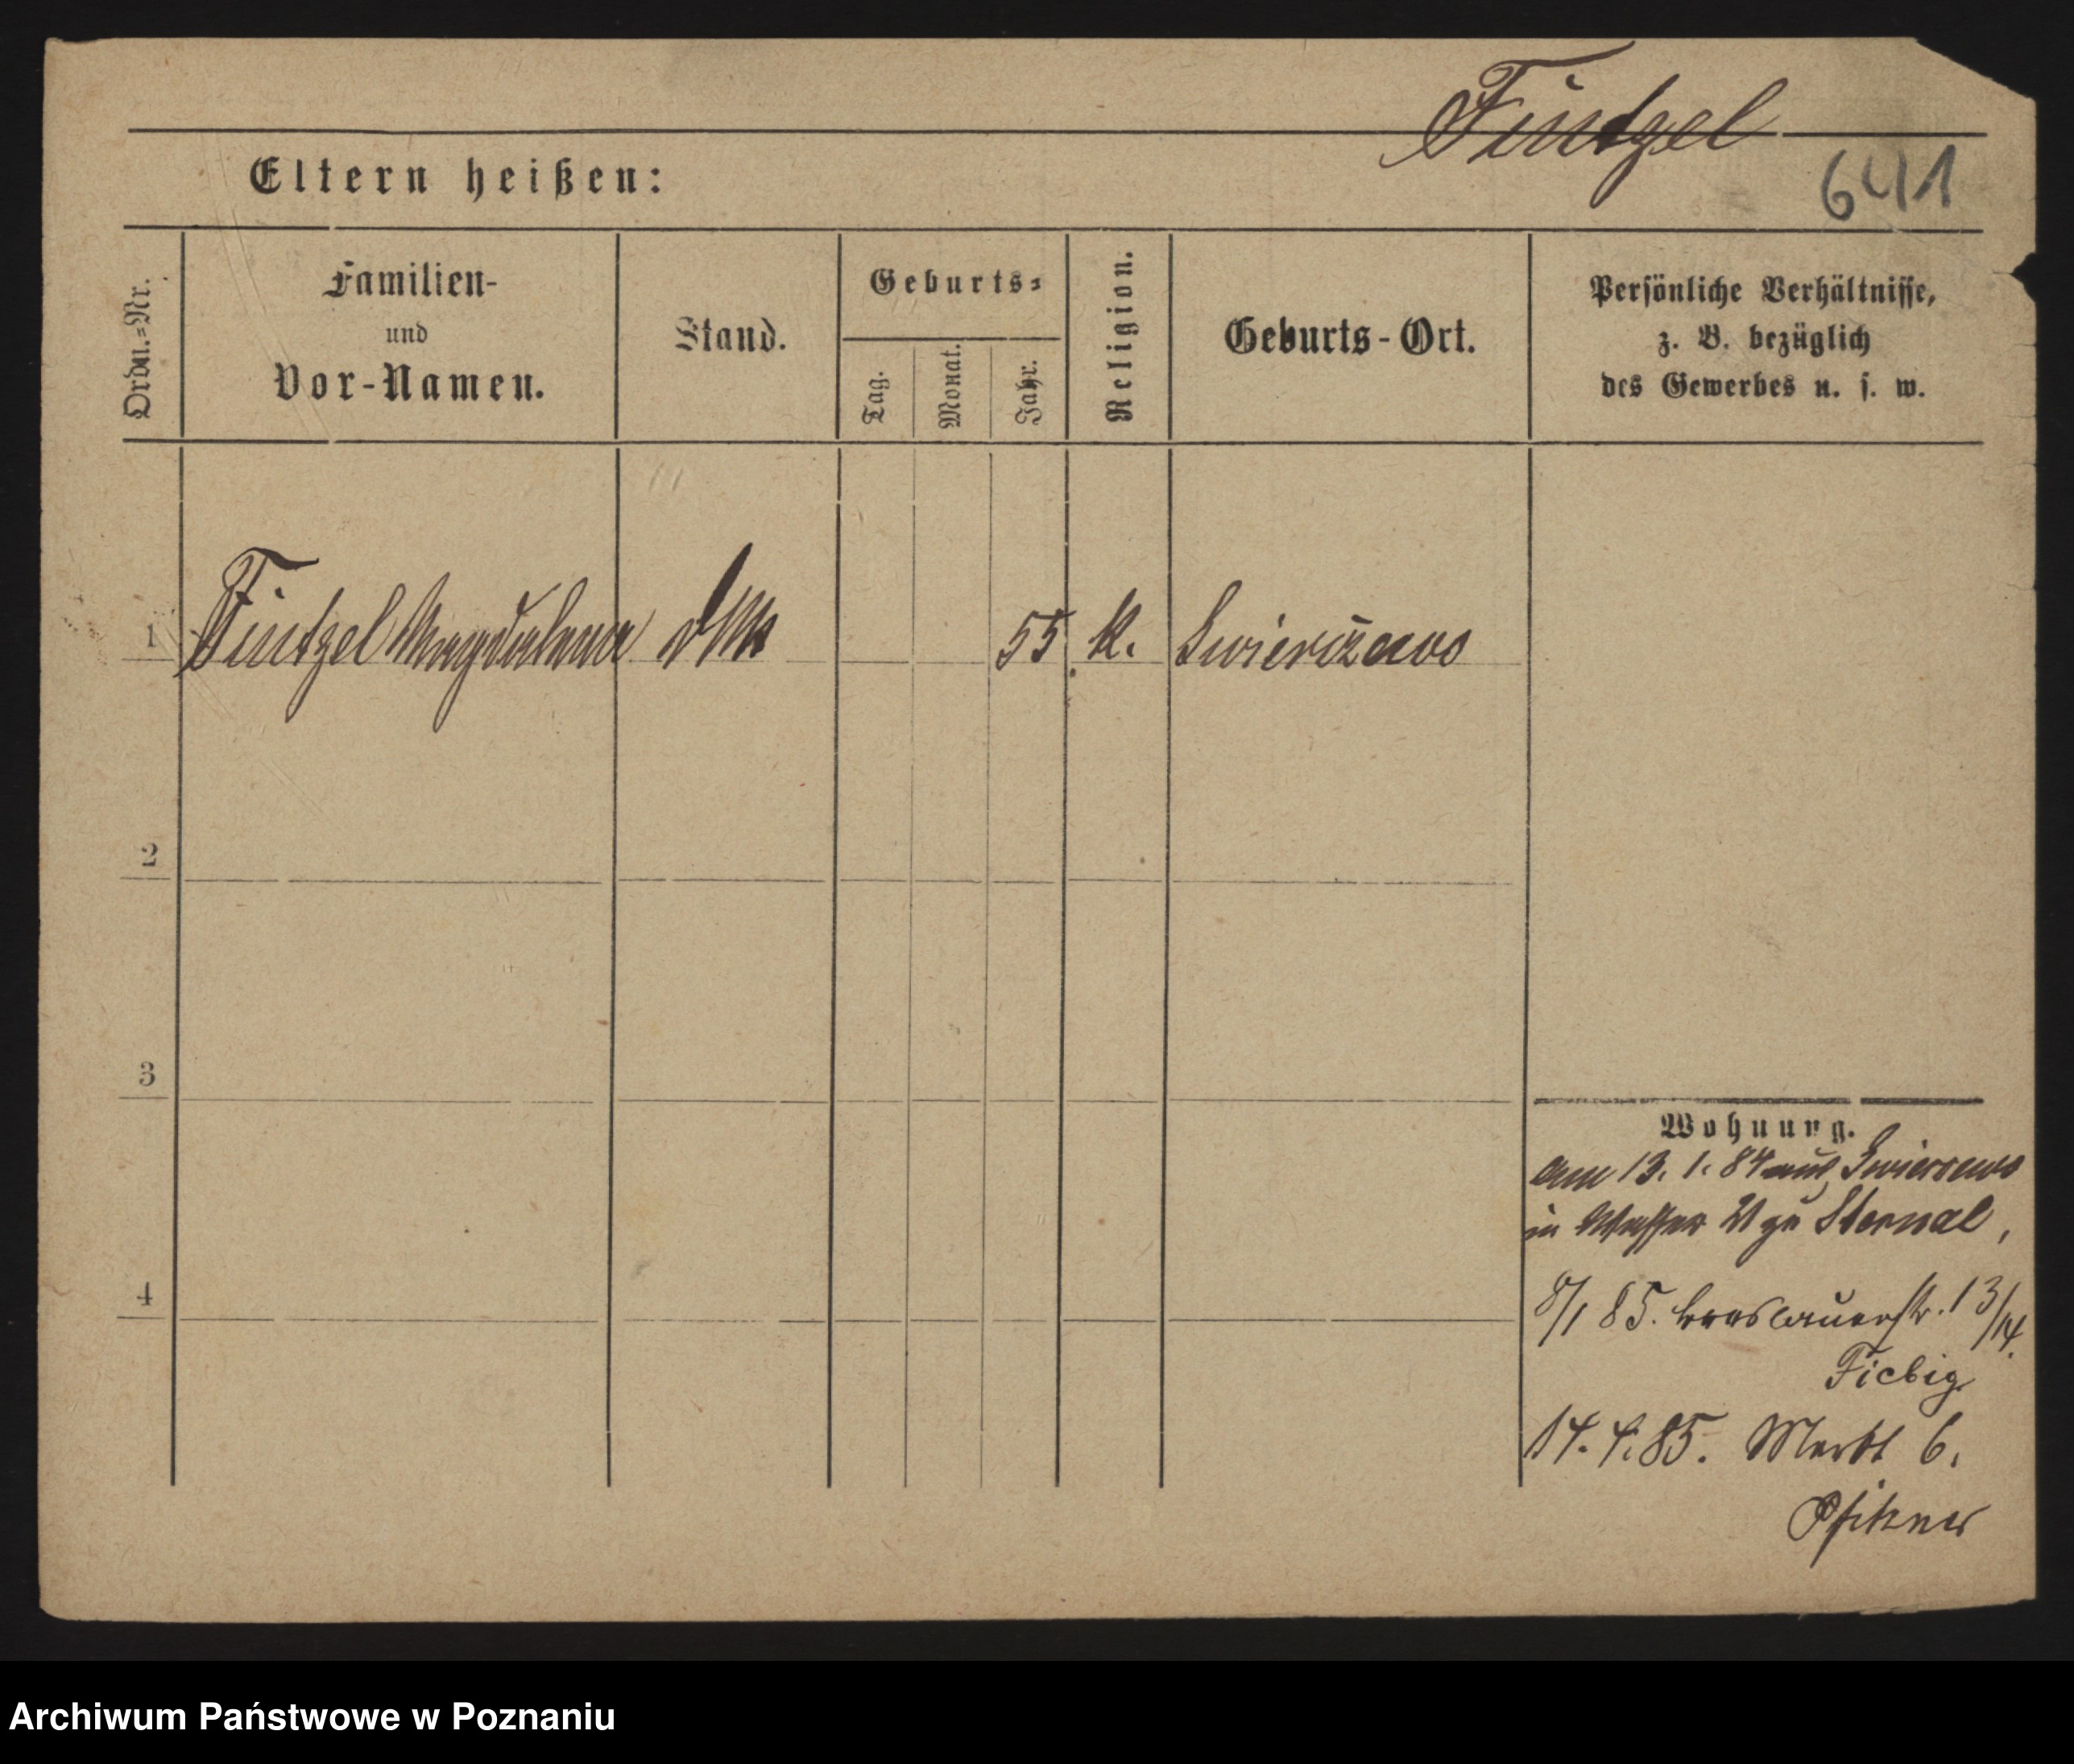 Fintzel
641
Eltern heißen:
Ordn.=Nr.
Familien-
und
Vor-Namen.
Stand.
Geburts=
Tag.
Monat.
Jahr.
Religion.
Geburts-Ort.
Persönliche Verhältnisse,
z. B. bezüglich
des Gewerbes u. s. w.
1 Fintzel Magdalena 55 k. Swierczewo
2
3
4
Wohnung.
am 13. 1. 84 aus Swierczewo
in 21 zu Sternal,
8/1 85. breslauerstr. 13/14.
Fiebig
14. 4. 85. Markt 6.
Archiwum Państwowe w Poznaniu